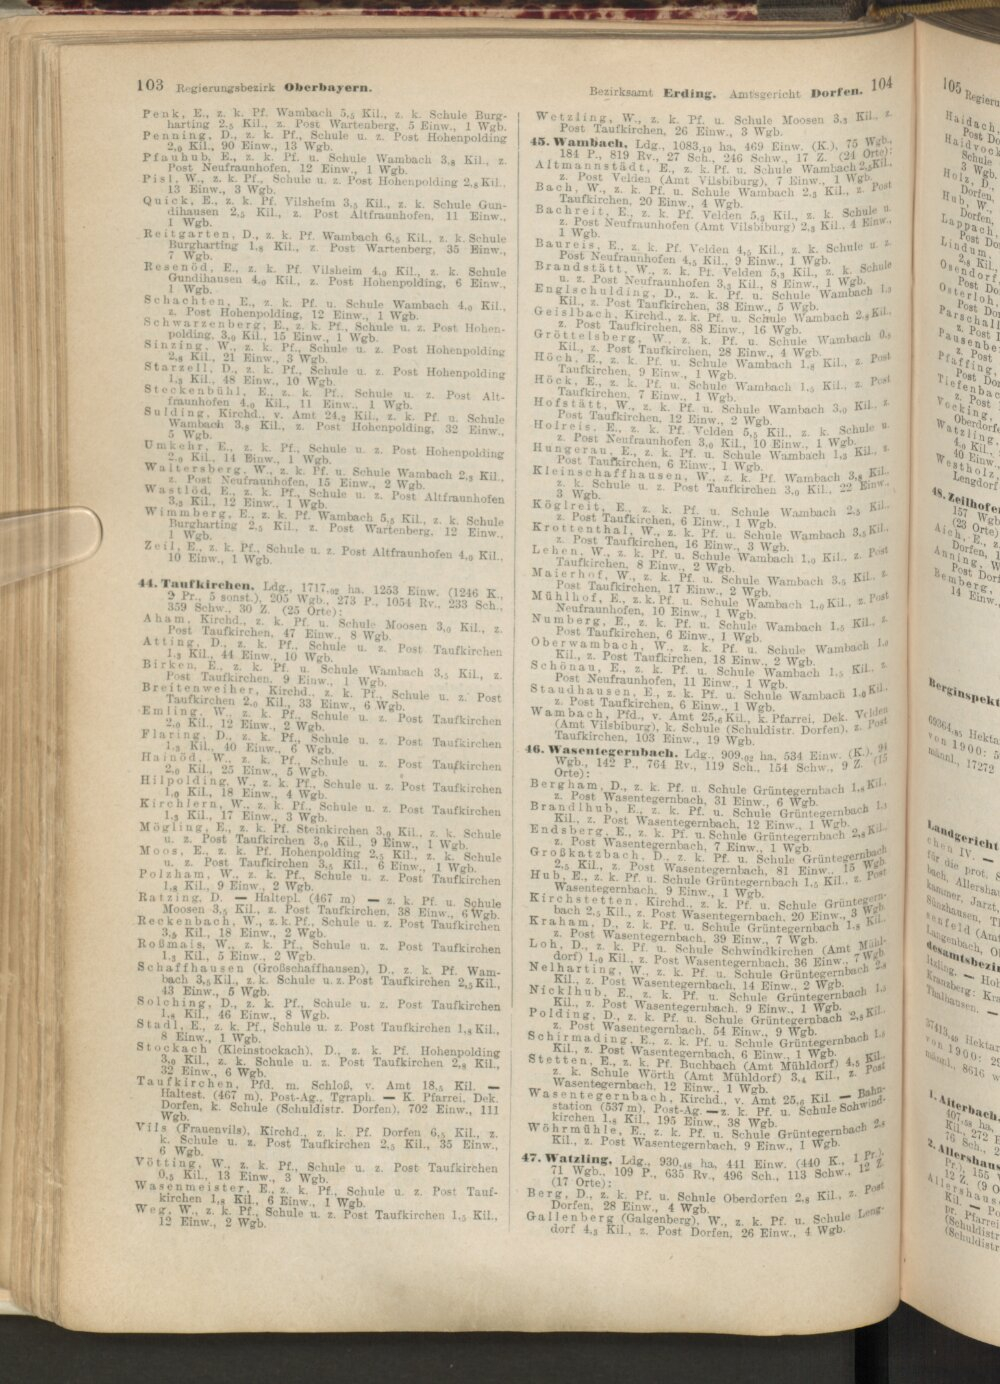 103 Regierungsbezirk Oberbayern.
Penk, E., z. k. Pf. Wambach 5,5 Kil., z. k. Schule Burg-
harting 2,5 Kil., z. Post Wartenberg, 5 Einw., 1 Wgb.
Penning, D., z. k. Pf., Schule u. z. Post Hohenpolding
2,0 Kil., 90 Einw., 13 Wgb.
Pfauhub, E., z. k. Pf. u. Schule Wambach 3,8 Kil., z.
Post Neufraunhofen, 12 Einw., 1 Wgb.
Pisl, W., z. k. Pf., Schule u. z. Post Hohenpolding 2,8 Kil.,
13 Einw., 3 Wgb.
Quick, E., z. k. Pf. Vilsheim 3,5 Kil., z. k. Schule Gun-
dihausen 2,5 Kil., z. Post Altfraunhofen, 11 Einw.,
1 Wgb.
Reitgarten, D., z. k. Pf. Wambach 6,5 Kil., z. k. Schule
Burgharting 1,8 Kil., z. Post Wartenberg, 35 Einw.,
7 Wgb.
Resenöd, E., z. k. Pf. Vilsheim 4,0 Kil., z. k. Schule
Gundihausen 4,0 Kil., z. Post Hohenpolding, 6 Einw.,
1 Wgb.
Schachten, E., z. k. Pf. u. Schule Wambach 4,0 Kil.,
z. Post Hohenpolding, 12 Einw., 1 Wgb.
Schwarzenberg, E., z. k. Pf., Schule u. z. Post Hohen-
polding, 3,0 Kil., 15 Einw., 1 Wgb.
Sinzing, W., z. k. Pf., Schule u. z. Post Hohenpolding
2,8 Kil., 21 Einw., 3 Wgb.
Starzell, D., z. k. Pf., Schule u. z. Post Hohenpolding
1,5 Kil., 48 Einw., 10 Wgb.
Steckenbühl, E., z. k. Pf., Schule u. z. Post Alt-
fraunhofen 4,0 Kil., 11 Einw., 1 Wgb.
Sulding, Kirchd., v. Amt 24,2 Kil., z. k. Pf. u. Schule
Wambach 3,8 Kil., z. Post Hohenpolding, 32 Einw.,
5 Wgb.
Umkehr, E., z. k. Pf., Schule u. z. Post Hohenpolding
2,0 Kil., 14 Einw., 1 Wgb.
Waltersberg, W., z. k. Pf. u. Schule Wambach 2,8 Kil.,
z. Post Neufraunhofen, 15 Einw., 2 Wgb.
Wastlöd, E., z. k. Pf., Schule u. z. Post Altfraunhofen
3,5 Kil., 12 Einw., 1 Wgb.
Wimmberg, E., z. k. Pf. Wambach 5,5 Kil., z. k. Schule
Burgharting 2,5 Kil., z. Post Wartenberg, 12 Einw.,
1 Wgb.
Zeil, E., z. k. Pf., Schule u. z. Post Altfraunhofen 4,0 Kil.,
10 Einw., 1 Wgb.
44. Taufkirchen, Ldg., 1717,02 ha, 1253 Einw. (1246 K.,
2 Pr., 5 sonst.), 205 Wgb., 273 P., 1054 Rv., 233 Sch.,
359 Schw., 30 Z. (25 Orte):
Aham, Kirchd., z. k. Pf. u. Schule Moosen 3,0 Kil., z.
Post Taufkirchen, 47 Einw., 8 Wgb.
Atting, D., z. k. Pf., Schule u. z. Post Taufkirchen
1,3 Kil., 44 Einw., 10 Wgb.
Birken, E., z. k. Pf. u. Schule Wambach 3,5 Kil., z.
Post Taufkirchen, 9 Einw., 1 Wgb.
Breitenweiher, Kirchd., z. k. Pf., Schule u. z. Post
Taufkirchen 2,0 Kil., 33 Einw., 6 Wgb.
Emling, W., z. k. Pf., Schule u. z. Post Taufkirchen
2,0 Kil., 12 Einw., 2 Wgb.
Flaring, D., z. k. Pf., Schule u. z. Post Taufkirchen
1,3 Kil., 40 Einw., 6 Wgb.
Hainöd, W., z. k. Pf., Schule u. z. Post Taufkirchen
2,0 Kil., 25 Einw., 5 Wgb.
Hilpolding, W., z. k. Pf., Schule u. z. Post Taufkirchen
1,0 Kil., 18 Einw., 4 Wgb.
Kirchlern, W., z. k. Pf., Schule u. z. Post Taufkirchen
1,3 Kil., 17 Einw., 3 Wgb.
Mögling, E., z. k. Pf. Steinkirchen 3,0 Kil., z. k. Schule
u. z. Post Taufkirchen 3,0 Kil., 9 Einw., 1 Wgb.
Moos, E., z. k. Pf. Hohenpolding 2,5 Kil., z. k. Schule
u. z. Post Taufkirchen 3,5 Kil., 6 Einw., 1 Wgb.
Polzham, W., z. k. Pf., Schule u. z. Post Taufkirchen
1,8 Kil., 9 Einw., 2 Wgb.
Ratzing, D. — Haltepl. (467 m) — z. k. Pf. u. Schule
Moosen 3,5 Kil., z. Post Taufkirchen, 38 Einw., 6 Wgb.
Reckenbach, W., z. k. Pf., Schule u. z. Post Taufkirchen
3,5 Kil., 18 Einw., 2 Wgb.
Roßmais, W., z. k. Pf., Schule u. z. Post Taufkirchen
1,3 Kil., 5 Einw., 2 Wgb.
Schaffhausen (Großschaffhausen), D., z. k. Pf. Wam-
bach 3,5 Kil., z. k. Schule u. z. Post Taufkirchen 2,5 Kil.,
43 Einw., 5 Wgb.
Solching, D., z. k. Pf., Schule u. z. Post Taufkirchen
1,8 Kil., 46 Einw., 8 Wgb.
Stadl, E., z. k. Pf., Schule u. z. Post Taufkirchen 1,8 Kil.,
8 Einw., 1 Wgb.
Stockach (Kleinstockach), D., z. k. Pf. Hohenpolding
3,0 Kil., z. k. Schule u. z. Post Taufkirchen 2,8 Kil.,
32 Einw., 6 Wgb.
Taufkirchen, Pfd. m. Schloß, v. Amt 18,5 Kil. —
Haltest. (467 m), Post-Ag., Tgraph. — K. Pfarrei, Dek.
Dorfen, k. Schule (Schuldistr. Dorfen), 702 Einw., 111
Wgb.
Vils (Frauenvils), Kirchd., z. k. Pf. Dorfen 6,5 Kil., z.
k. Schule u. z. Post Taufkirchen 2,5 Kil., 35 Einw.,
6 Wgb.
Vötting, W., z. k. Pf., Schule u. z. Post Taufkirchen
0,5 Kil., 13 Einw., 3 Wgb.
Wasenmeister, E., z. k. Pf., Schule u. z. Post Tauf-
kirchen 1,8 Kil., 6 Einw., 1 Wgb.
Weg, W., z. k. Pf., Schule u. z. Post Taufkirchen 1,5 Kil.,
12 Einw., 2 Wgb.
Bezirksamt Erding. Amtsgericht Dorfen. 104
Wetzling, W., z. k. Pf. u. Schule Moosen 3,3 Kil., z.
Post Taufkirchen, 26 Einw., 3 Wgb.
45. Wambach, Ldg., 1083,10 ha, 469 Einw. (K.), 75 Wgb.,
184 P., 819 Rv., 27 Sch., 246 Schw., 17 Z. (24 Orte):
Altmannstädt, E., z. k. Pf. u. Schule Wambach 2,5 Kil.,
z. Post Velden (Amt Vilsbiburg), 7 Einw., 1 Wgb.
Bach, W., z. k. Pf. u. Schule Wambach 2,5 Kil., z. Post
Taufkirchen, 20 Einw., 4 Wgb.
Bachreit, E., z. k. Pf. Velden 5,0 Kil., z. k. Schule u.
z. Post Neufraunhofen (Amt Vilsbiburg) 2,3 Kil., 4 Einw.,
1 Wgb.
Baureis, E., z. k. Pf. Velden 4,5 Kil., z. k. Schule u. z.
Post Neufraunhofen 4,5 Kil., 9 Einw., 1 Wgb.
Brandstätt, W., z. k. Pf. Velden 5,3 Kil., z. k. Schule
u. z. Post Neufraunhofen 3,3 Kil., 8 Einw., 1 Wgb.
Englschulding, D., z. k. Pf. u. Schule Wambach 1,3
Kil., z. Post Taufkirchen, 38 Einw., 5 Wgb.
Geislbach, Kirchd., z. k. Pf. u. Schule Wambach 2,8 Kil.,
z. Post Taufkirchen, 88 Einw., 16 Wgb.
Gröttelsberg, W., z. k. Pf. u. Schule Wambach 0,5
Kil., z. Post Taufkirchen, 28 Einw., 4 Wgb.
Höch, E., z. k. Pf. u. Schule Wambach 1,8 Kil., z. Post
Taufkirchen, 9 Einw., 1 Wgb.
Höck, E., z. k. Pf. u. Schule Wambach 1,5 Kil., z. Post
Taufkirchen, 7 Einw., 1 Wgb.
Hofstätt, W., z. k. Pf. u. Schule Wambach 3,0 Kil., z.
Post Taufkirchen, 12 Einw., 2 Wgb.
Holreis, E., z. k. Pf. Velden 5,5 Kil., z. k. Schule u.
z. Post Neufraunhofen 3,0 Kil., 10 Einw., 1 Wgb.
Hungerau, E., z. k. Pf. u. Schule Wambach 1,3 Kil., z.
Post Taufkirchen, 6 Einw., 1 Wgb.
Kleinschaffhausen, W., z. k. Pf. Wambach 3,8 Kil.,
z. k. Schule u. z. Post Taufkirchen 3,0 Kil., 22 Einw.,
3 Wgb.
Köglreit, E., z. k. Pf. u. Schule Wambach 2,5 Kil.,
z. Post Taufkirchen, 6 Einw., 1 Wgb.
Krottenthal, W., z. k. Pf. u. Schule Wambach 3,5 Kil.,
z. Post Taufkirchen, 16 Einw., 3 Wgb.
Lehen, W., z. k. Pf. u. Schule Wambach 1,0 Kil., z. Post
Taufkirchen, 8 Einw., 2 Wgb.
Maierhof, W., z. k. Pf. u. Schule Wambach 3,5 Kil., z.
Post Taufkirchen, 17 Einw., 2 Wgb.
Mühlhof, E., z. k. Pf. u. Schule Wambach 1,0 Kil., z. Post
Neufraunhofen, 10 Einw., 1 Wgb.
Numberg, E., z. k. Pf. u. Schule Wambach 1,5 Kil., z.
Post Taufkirchen, 6 Einw., 1 Wgb.
Oberwambach, W., z. k. Pf. u. Schule Wambach 1,0
Kil., z. Post Taufkirchen, 18 Einw., 2 Wgb.
Schönau, E., z. k. Pf. u. Schule Wambach 1,5 Kil., z.
Post Neufraunhofen, 11 Einw., 1 Wgb.
Staudhausen, E., z. k. Pf. u. Schule Wambach 1,0 Kil.,
z. Post Taufkirchen, 6 Einw., 1 Wgb.
Wambach, Pfd., v. Amt 25,6 Kil., k. Pfarrei, Dek. Velden
(Amt Vilsbiburg), k. Schule (Schuldistr. Dorfen), z. Post
Taufkirchen, 103 Einw., 19 Wgb.
46. Wasentegernbach, Ldg., 909,02 ha, 534 Einw. (K.), 94
Wgb., 142 P., 764 Rv., 119 Sch., 154 Schw., 9 Z. (15
Orte):
Bergham, D., z. k. Pf. u. Schule Grüntegernbach 1,8 Kil.,
z. Post Wasentegernbach, 31 Einw., 6 Wgb.
Brandlhub, E., z. k. Pf. u. Schule Grüntegernbach 1,3
Kil., z. Post Wasentegernbach, 12 Einw., 1 Wgb.
Endsberg, E., z. k. Pf. u. Schule Grüntegernbach 2,8 Kil.,
z. Post Wasentegernbach, 7 Einw., 1 Wgb.
Großkatzbach, D., z. k. Pf. u. Schule Grüntegernbach
2,5 Kil., z. Post Wasentegernbach, 81 Einw., 15 Wgb.
Hub, E., z. k. Pf. u. Schule Grüntegernbach 1,5 Kil., z. Post
Wasentegernbach, 9 Einw., 1 Wgb.
Kirchstetten, Kirchd., z. k. Pf. u. Schule Grüntegern-
bach 2,5 Kil., z. Post Wasentegernbach, 20 Einw., 3 Wgb.
Kraham, D., z. k. Pf. u. Schule Grüntegernbach 1,8 Kil.,
z. Post Wasentegernbach, 39 Einw., 7 Wgb.
Loh, D., z. k. Pf. u. Schule Schwindkirchen (Amt Mühl-
dorf) 1,0 Kil., z. Post Wasentegernbach, 36 Einw., 7 Wgb.
Nelharting, W., z. k. Pf. u. Schule Grüntegernbach 2,8
Kil., z. Post Wasentegernbach, 14 Einw., 2 Wgb.
Nicklhub, E., z. k. Pf. u. Schule Grüntegernbach 1,5
Kil., z. Post Wasentegernbach, 9 Einw., 1 Wgb.
Polding, D., z. k. Pf. u. Schule Grüntegernbach 2,8 Kil.,
z. Post Wasentegernbach, 54 Einw., 9 Wgb.
Schirmading, E., z. k. Pf. u. Schule Grüntegernbach 1,5
Kil., z. Post Wasentegernbach, 6 Einw., 1 Wgb.
Stetten, E., z. k. Pf. Buchbach (Amt Mühldorf) 4,5 Kil.,
z. k. Schule Wörth (Amt Mühldorf) 3,4 Kil., z. Post
Wasentegernbach, 12 Einw., 1 Wgb.
Wasentegernbach, Kirchd., v. Amt 25,6 Kil. — Bahn-
station (537 m), Post-Ag. — z. k. Pf. u. Schule Schwind-
kirchen 1,8 Kil., 195 Einw., 38 Wgb.
Wöhrmühle, E., z. k. Pf. u. Schule Grüntegernbach 2,8
Kil., z. Post Wasentegernbach, 9 Einw., 1 Wgb.
47. Watzling, Ldg., 930,48 ha, 441 Einw. (440 K., 1 Pr.),
71 Wgb., 109 P., 635 Rv., 496 Sch., 113 Schw., 12 Z.
(17 Orte):
Berg, D., z. k. Pf. u. Schule Oberdorfen 2,8 Kil., z. Post
Dorfen, 28 Einw., 4 Wgb.
Gallenberg (Galgenberg), W., z. k. Pf. u. Schule Leng-
dorf 4,3 Kil., z. Post Dorfen, 26 Einw., 4 Wgb.
105 Regieru
Haidach,
Post Do
Haidvock
Schule
3 Wgb.
Holz, D.,
Dorfen,
Hub, W.,
Dorfen,
Lappach,
Post Do
Lindum,
2,8 Kil.,
Osendorf
Post Do
Osterloh,
Post Do
Parschall
z. Post
Pausenbe
z. Post
Pfaffing,
Post Do
Tiefenbac
z. Post
Vocking,
Oberdorfe
Watzling,
4,0 Kil.,
40 Einw.,
Westholz
Lengdorf
48. Zeilhofe
157 Wgb
(23 Orte)
Aich, E., z
Dorfen, 1
Anning, W
Post Dorf
Bemberg,
14 Einw.
Berginspekt
69364,85 Hekta
von 1900: 5
männl., 17272
Landgericht
chen IV. —
für die prot. S
bach, Allersha
kammer, Jarzt,
Sünzhausen, T
senfeld (Amt
Langenbach, O
desamtsbezir
Itzling. — Hol
Kranzberg: Kra
Thalhausen. —
37413,49 Hektar
von 1900: 29
männl., 8616 w
1. Aiterbach,
407,68 ha,
Kil., 272 E
76 Sch., 2
2. Allershaus
Pr.), 155 W
12 Z. (9 O
Allershaus
Kil. — Po
pr. Pfarrei
(Schuldistr
(Schuldistr